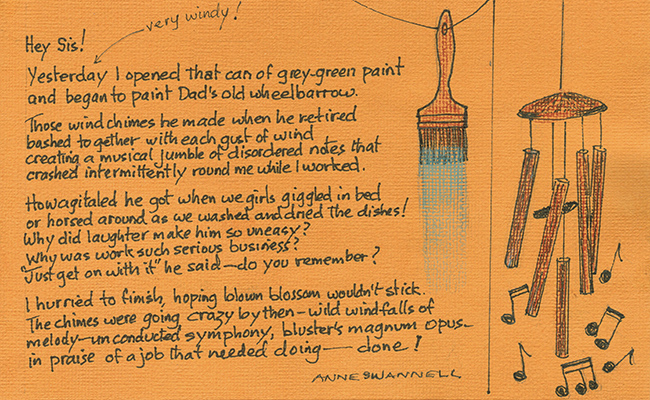 very windy!
Hey Sis!
Yesterday I opened that can of grey-green paint
and began to paint Dad's old wheelbarrow.
Those wind chimes he made when he retired
bashed together with each gust of wind
creating a musical jumble of disordered notes that
crashed intermittently round me while I worked.
How agitated he got when we girls giggled in bed
or horsed around as we washed and dried the dishes!
Why did laughter make him so uneasy?
Why was work such serious business?
"Just get on with it" he said—do you remember?
I hurried to finish, hoping blown blossom wouldn't stick.
The chimes were going crazy by then—wild wind-falls of
melody—unconducted symphony, bluster's magnum opus—
in praise of a job that needed doing—done!
ANNE SWANNELL